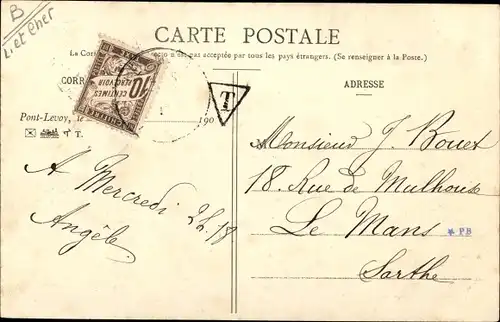 B
L. et Cher
CARTE POSTALE
recto n'est pas acceptée par tous les pays étrangers. (Se renseigner à la Poste.)
CORR
ADRESSE
10
CENTIMES
PERCEVOIR
T
Pont-Levoy, le 190
T.
A Mercredi
Angèle.
Monsieur J. Bouet
18. Rue de Mulhouse
Le Mans
* PB
Sarthe